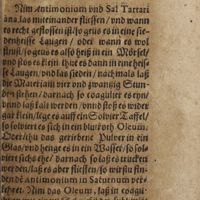 Nim Antimonium vnd Sal Tartari
ana.las miteinander fliessen/ vnd wann
es recht geflossen ist/so geus es in eine sie-
denheisse Laugen/ oder wann es wol
fleust/ so geus es also heiß in ein Mörsel/
vnd stos es klein/ thut es dann in eine heis-
se Laugen/ vnd las sieden/ nachmals laß
die Materiam vier vnd zwanzig Stun-
den stehen/ darnach so coagulier es eyn/
vnd laß kalt werden/ vnnd stoß es wider
gar klein/ lege es auff ein Solvier Taffel/
so solviert es sich in ein blutroht Oleum.
Oder thu das geriebene Pulver in ein
Glas/ vnd henge es in ein Wasser/ so sol-
viert sichs ehe/ darnach so laß es trucken
werden/ laß es aber fliessen/ so wirstu fin-
den dz Antimonium in Saturnum ver-
kehret. Nim das Oleum, laß in coagu-